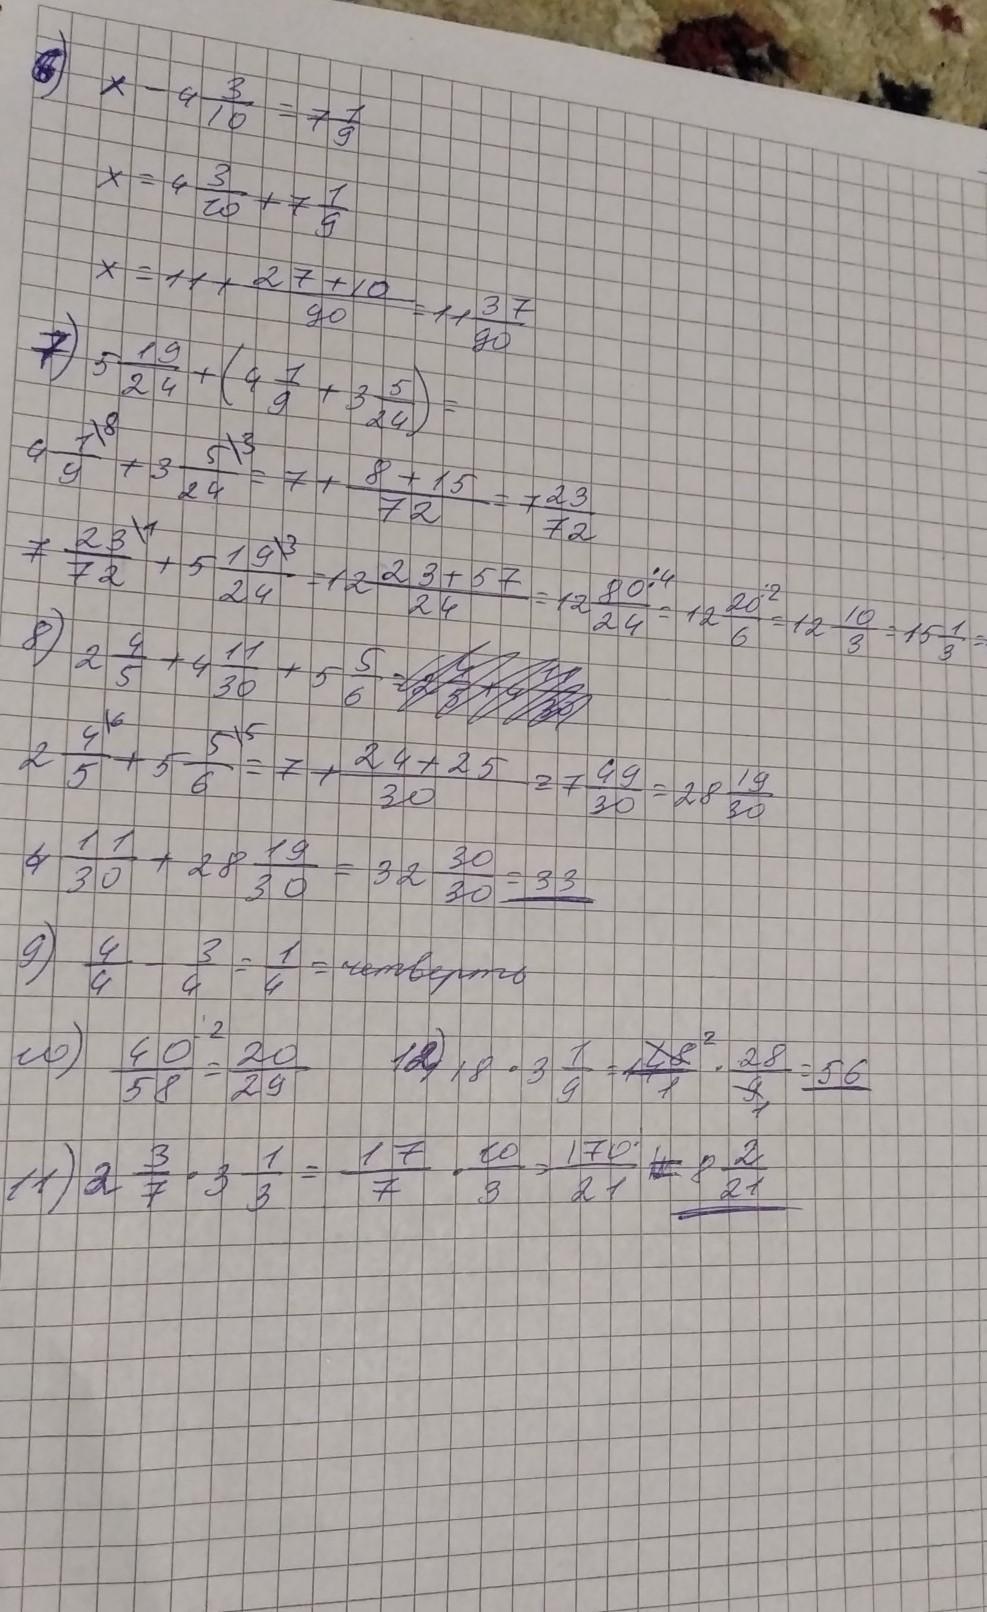 6) x - 4 3/10 = 7 1/9
x = 4 3/10 + 7 1/9
x = 11 + (27 + 10)/90 = 11 37/90
7) 5 19/24 + (4 1/9 + 3 5/24) =
4 1\8/9 + 3 5\3/24 = 7 + (8 + 15)/72 = 7 23/72
7 23\1/72 + 5 19\3/24 = 12 (23 + 57)/24 = 12 80:4/24 = 12 20:2/6 = 12 10/3 = 15 1/3 =
8) 2 4/5 + 4 11/30 + 5 5/6 =
2 4\6/5 + 5 5\5/6 = 7 + (24 + 25)/30 = 7 49/30 = 28 19/30
4 11/30 + 28 19/30 = 32 30/30 = 33
9) 4/4 - 3/4 = 1/4 = четверть
10) 40:2/58 = 20/29
12) 18 · 3 1/9 = 18 2/1 · 28/9 1 = 56
11) 2 3/7 · 3 1/3 = 17/7 · 10/3 = 170/21 = 8 2/21